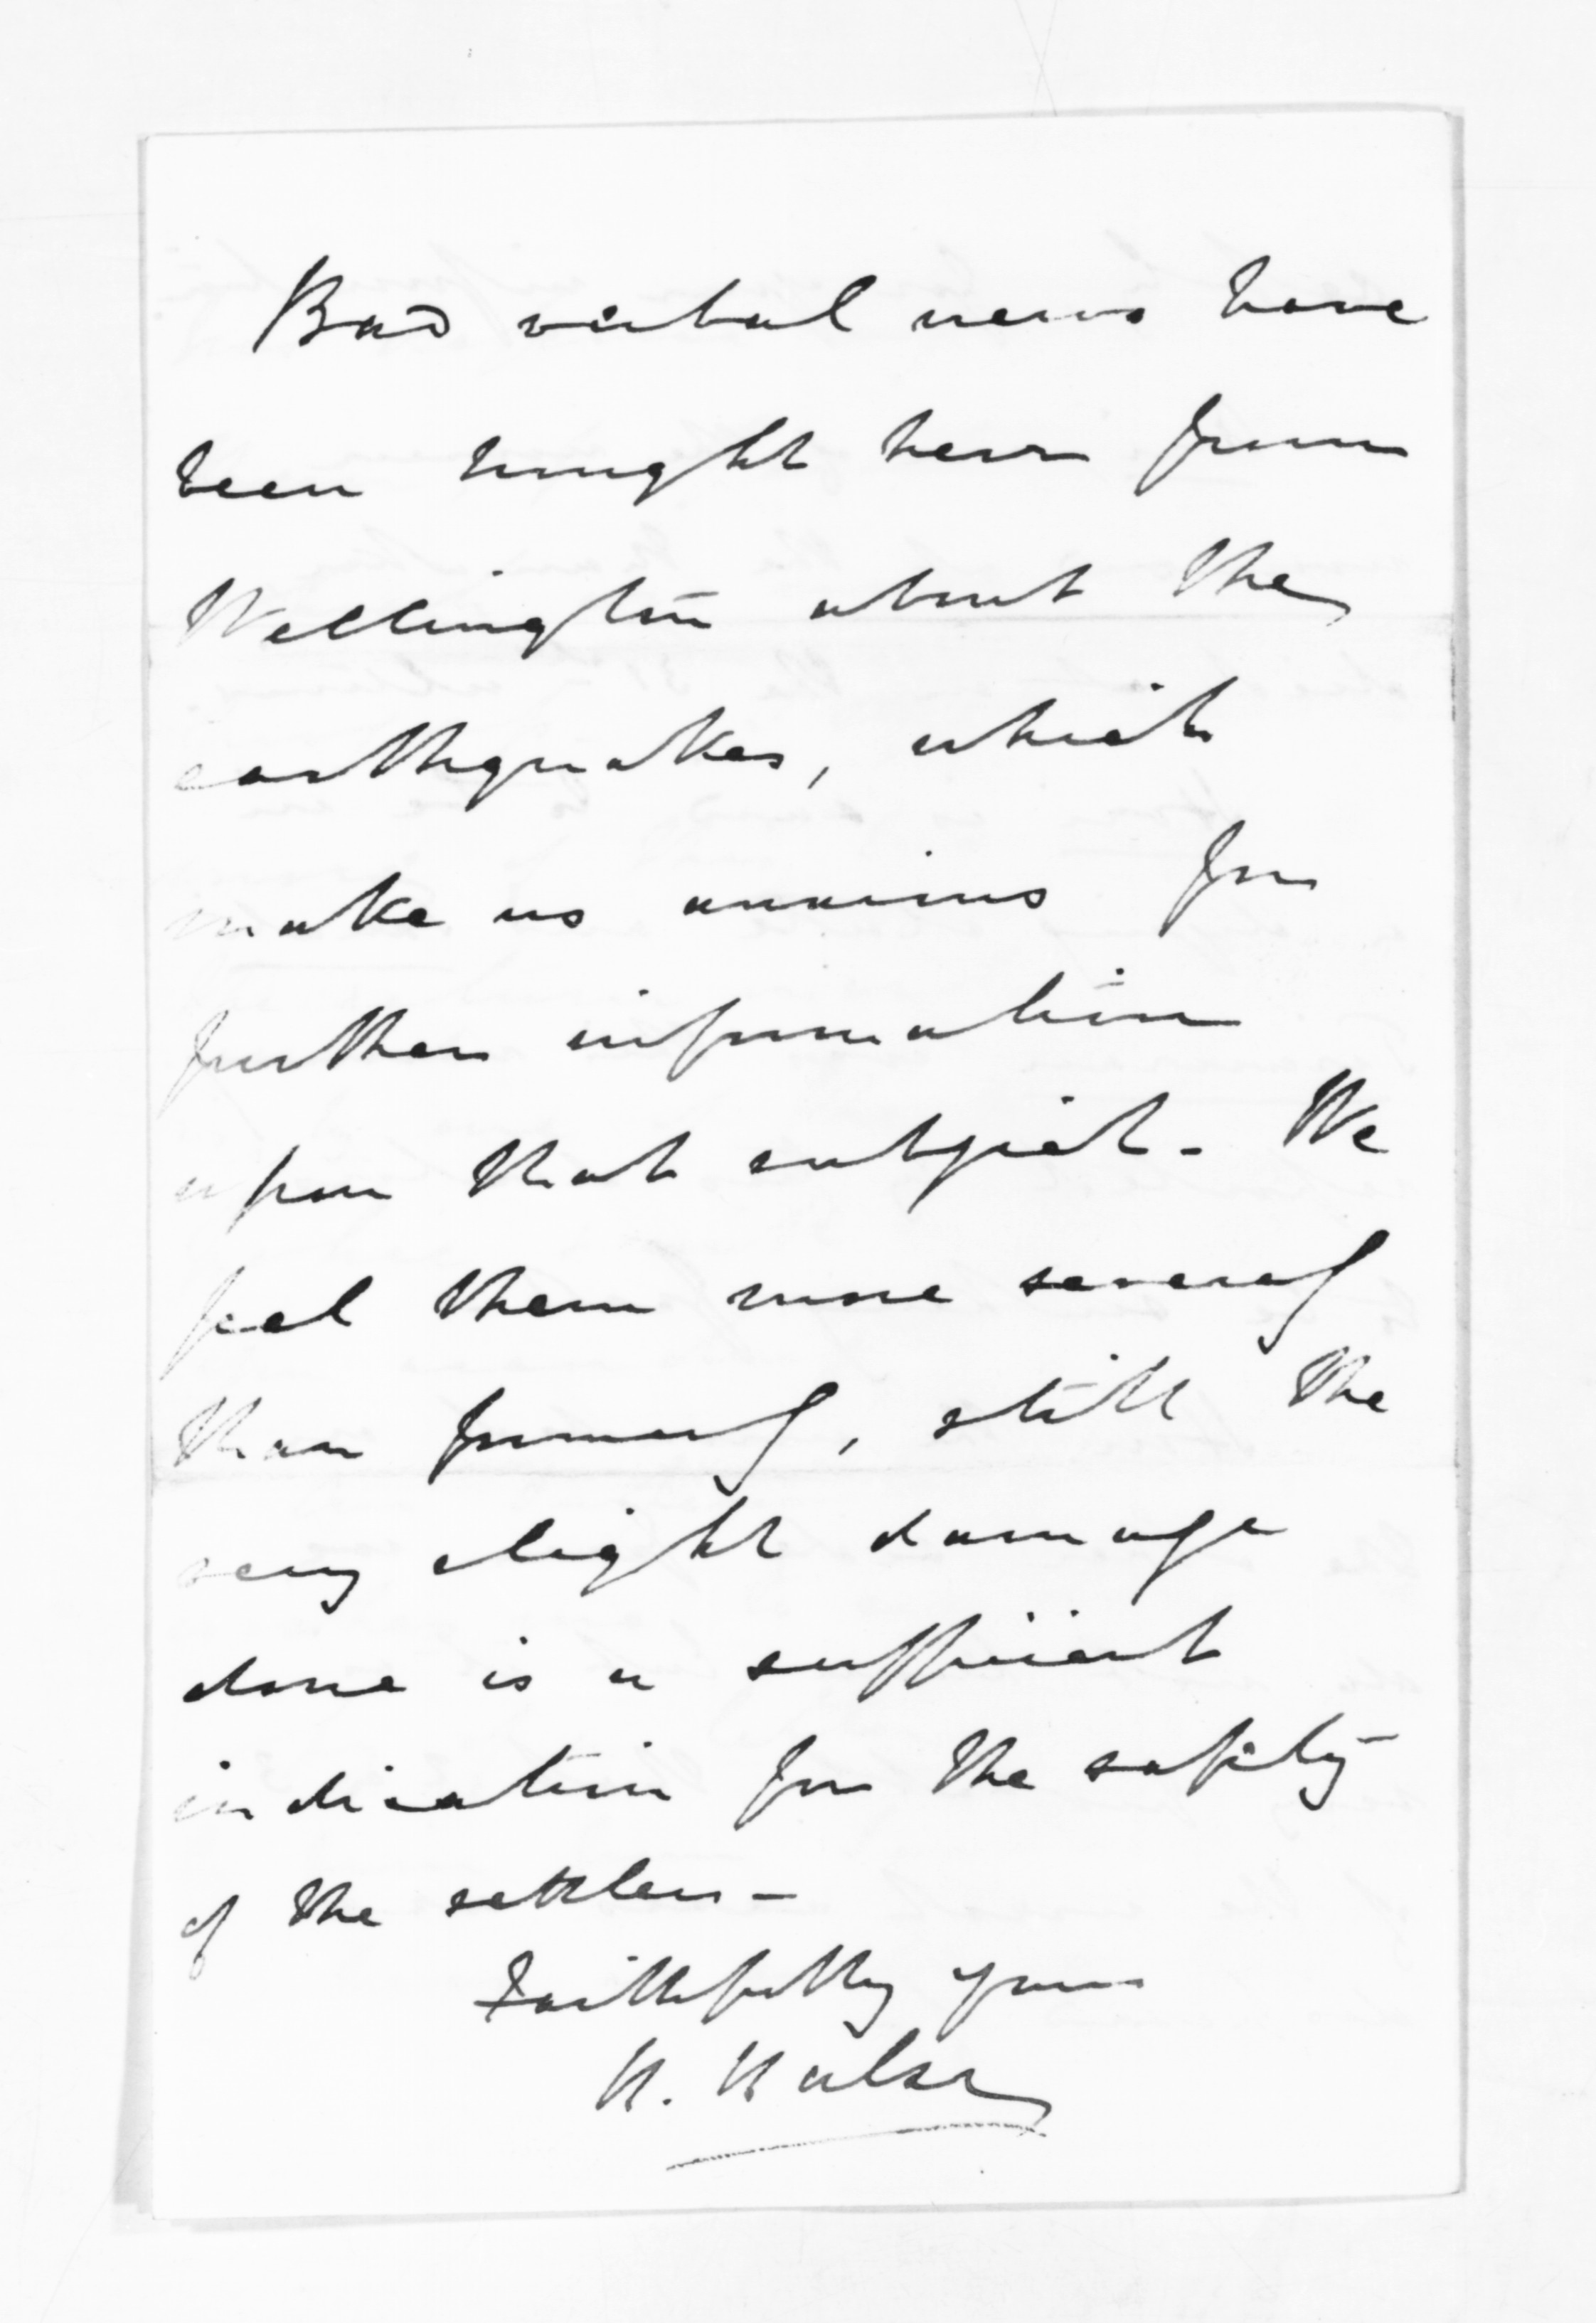 Bad verbal news have
been brought here from
Wellington about the
earthquakes, which
make us anxious for
further information
upon that subject - We
feel them more severely
than formerly, still the
very slight damage
done is a sufficient
indication for the safety
of the settlers -
Faithfully yours
H. Halse